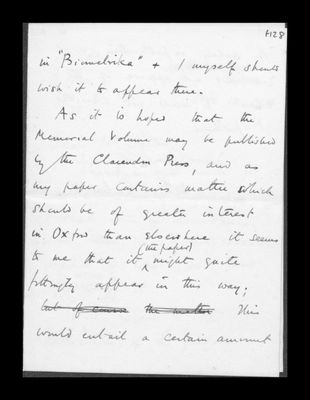 H28
in "Biometrika" & I myself should
wish it to appear there.
As it is hoped that the
Memorial Volume may be published
by the Clarendon Press, and as
my paper contains matter which
should be of greater interest
in Oxford than elsewhere it seems
(the paper)
to me that it might quite
fittingly appear in this way;
but of course the matter this
would entail a certain amount